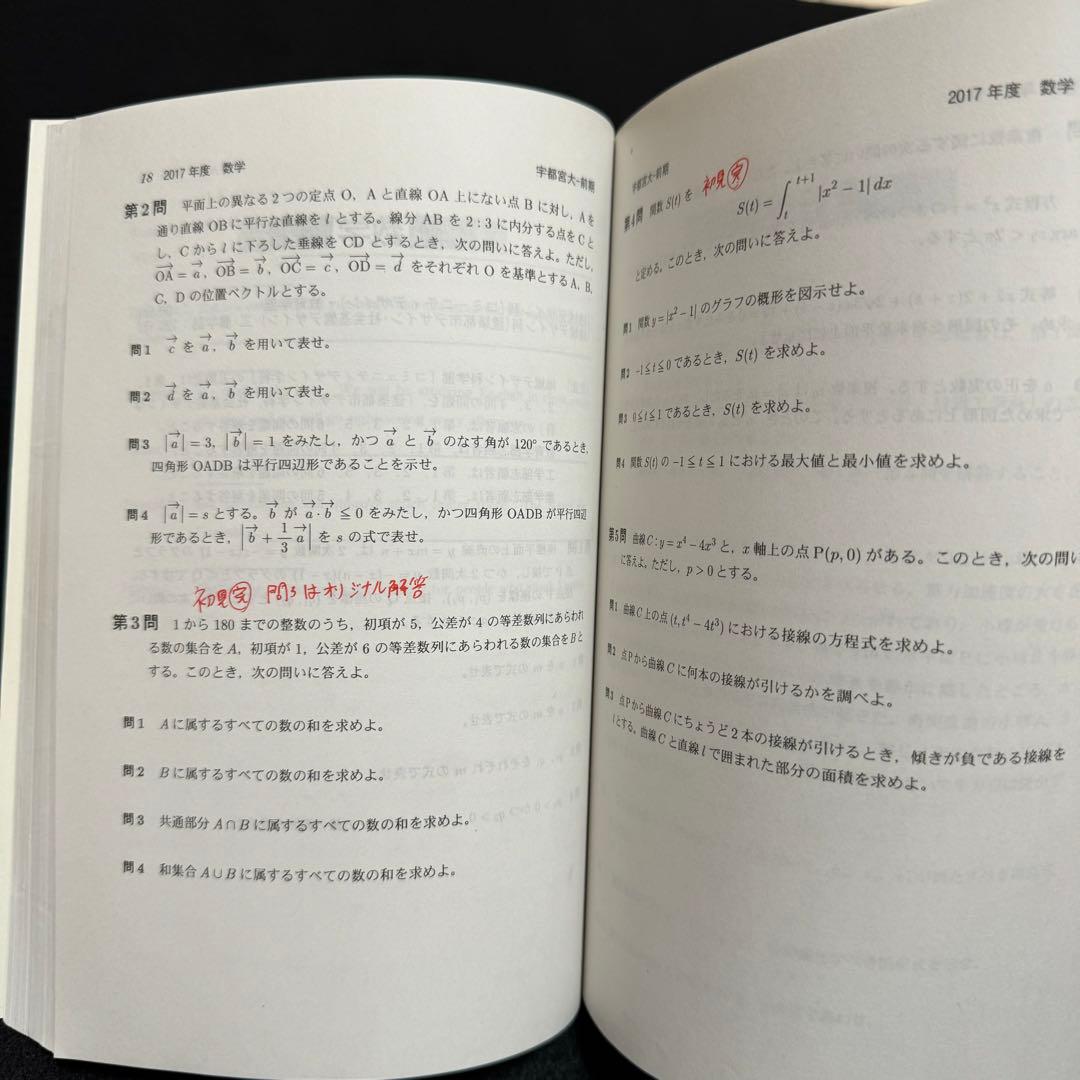 18 2017年度 数学
宇都宮大-前期
第2問 平面上の異なる2つの定点 O, A と直線 OA 上にない点 B に対し, A を
通り直線 OB に平行な直線を l とする。線分 AB を 2:3 に内分する点を C と
し, C から l に下ろした垂線を CD とするとき, 次の問いに答えよ。ただし,
$\overrightarrow{OA}=\vec{a}$, $\overrightarrow{OB}=\vec{b}$, $\overrightarrow{OC}=\vec{c}$, $\overrightarrow{OD}=\vec{d}$ をそれぞれ O を基準とする A, B,
C, D の位置ベクトルとする。
問1 $\vec{c}$ を $\vec{a}$, $\vec{b}$ を用いて表せ。
問2 $\vec{d}$ を $\vec{a}$, $\vec{b}$ を用いて表せ。
問3 $|\vec{a}|=3$, $|\vec{b}|=1$ をみたし, かつ $\vec{a}$ と $\vec{b}$ のなす角が 120° であるとき,
四角形 OADB は平行四辺形であることを示せ。
問4 $|\vec{a}|=s$ とする。$\vec{b}$ が $\vec{a}\cdot\vec{b}\leqq 0$ をみたし, かつ四角形 OADB が平行四辺
形であるとき, $\left|\vec{b}+\frac{1}{3}\vec{a}\right|$ を s の式で表せ。
初見完 問3はオリジナル解答
第3問 1から180までの整数のうち, 初項が5, 公差が4の等差数列にあらわれ
る数の集合を A, 初項が1, 公差が6の等差数列にあらわれる数の集合を B と
する。このとき, 次の問いに答えよ。
問1 A に属するすべての数の和を求めよ。
問2 B に属するすべての数の和を求めよ。
問3 共通部分 A∩B に属するすべての数の和を求めよ。
問4 和集合 A∪B に属するすべての数の和を求めよ。
2017年度 数学
宇都宮大-前期
初見完
第4問 関数 S(t) を
$S(t)=\int_{t}^{t+1}|x^2-1|\,dx$
と定める。このとき, 次の問いに答えよ。
問1 関数 $y=|x^2-1|$ のグラフの概形を図示せよ。
問2 −1≦t≦0 であるとき, S(t) を求めよ。
問3 0≦t≦1 であるとき, S(t) を求めよ。
問4 関数 S(t) の −1≦t≦1 における最大値と最小値を求めよ。
第5問 曲線 $C:y=x^4-4x^3$ と, x 軸上の点 P(p, 0) がある。このとき, 次の問い
に答えよ。ただし, p>0 とする。
問1 曲線 C 上の点 $(t, t^4-4t^3)$ における接線の方程式を求めよ。
問2 点 P から曲線 C に何本の接線が引けるかを調べよ。
問3 点 P から曲線 C にちょうど2本の接線が引けるとき, 傾きが負である接線を
l とする。曲線 C と直線 l で囲まれた部分の面積を求めよ。